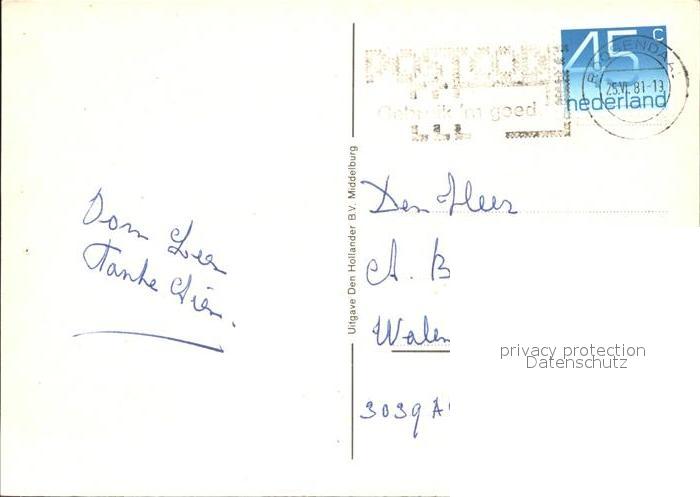 Oom Leen
Tante Dien.
Uitgave Den Hollander B.V. Middelburg
POSTCODE
Gebruik 'm goed.
45 c
nederland
ROOSENDAAL
25.VI.81-13
Den Heer
A. B
Walen
3039 A
privacy protection
Datenschutz